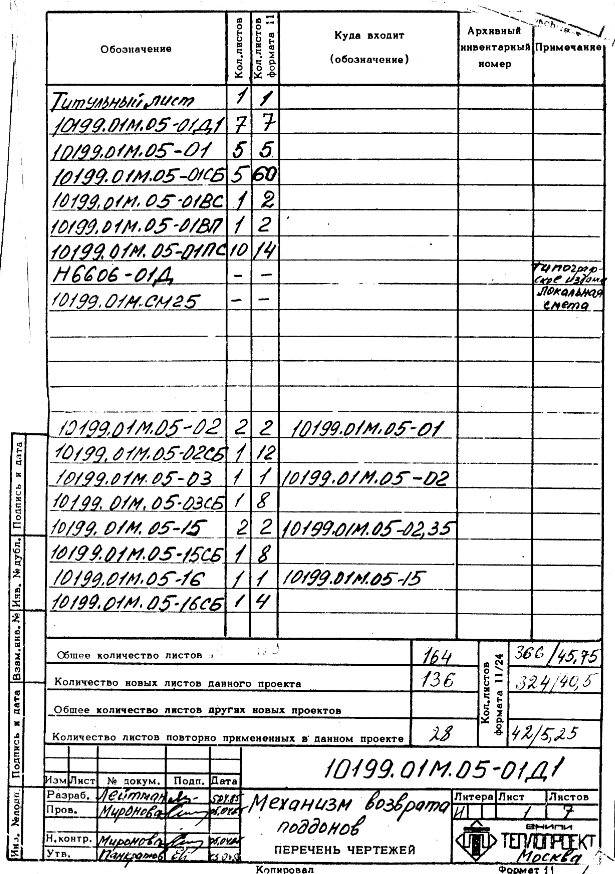 Обозначение Кол.листов Кол.листов формата 11 Куда входит (обозначение) Архивный инвентарный номер Примечание
Титульный лист 1 1
10199.01М.05-01Д1 7 7
10199.01М.05-01 5 5
10199.01М.05-01СБ 5 60
10199.01М.05-01ВС 1 2
10199.01М.05-01ВП 1 2
10199.01М.05-01ПС 10 14
Н6606-01Д - - типограф-
10199.01М.СМ25 - - локальная
смета
10199.01М.05-02 2 2 10199.01М.05-01
10199.01М.05-02СБ 1 12
10199.01М.05-03 1 1 10199.01М.05-02
10199.01М.05-03СБ 1 8
10199.01М.05-15 2 2 10199.01М.05-02,35
10199.01М.05-15СБ 1 8
10199.01М.05-16 1 1 10199.01М.05-15
10199.01М.05-16СБ 1 4
Общее количество листов 164 Кол.листов формата 11/24 366/45,75
Количество новых листов данного проекта 136 324/40,5
Общее количество листов других новых проектов
Количество листов повторно примененных в данном проекте 28 42/5,25
10199.01М.05-01Д1
Изм Лист № докум. Подп. Дата
Разраб. Лейтман
Пров. Миронова
Н.контр. Миронова
Утв. Панкратов
Механизм возврата
поддонов
ПЕРЕЧЕНЬ ЧЕРТЕЖЕЙ
Литера Лист Листов
И 1 7
ВНИПИ
ТЕПЛОПРОЕКТ
Москва
Копировал Формат 11
Инв. №подл. Подпись и дата Взам.инв. № Инв. № дубл. Подпись и дата